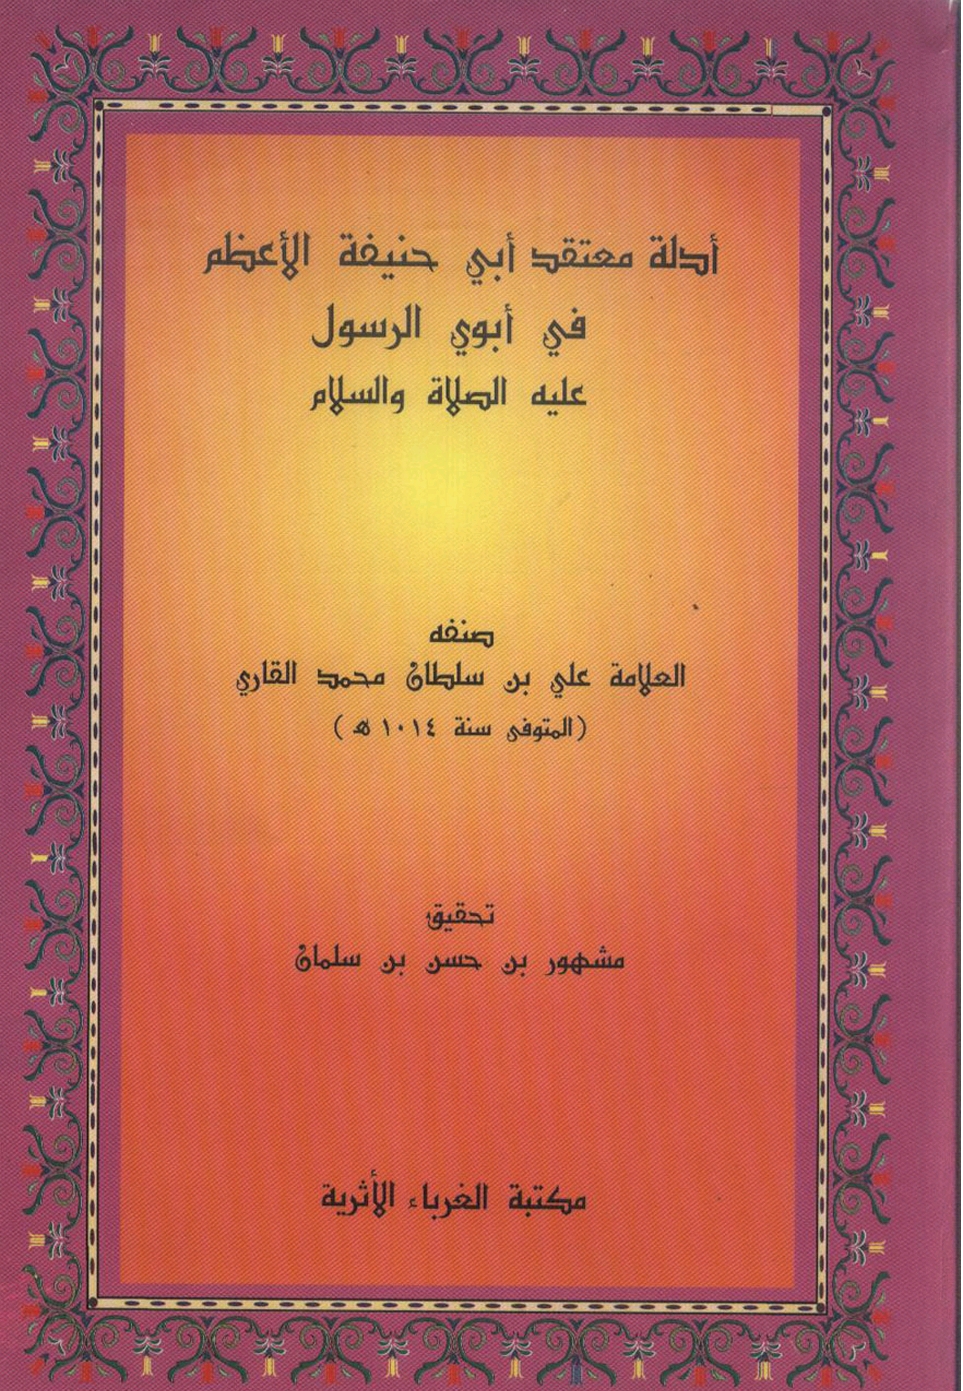 أدلة معتقد أبي حنيفة الأعظم
في أبوي الرسول
عليه الصلاة والسلام
صنفه
العلامة علي بن سلطان محمد القاري
(المتوفى سنة ١٠١٤ ه)
تحقيق
مشهور بن حسن بن سلمان
مكتبة الغرباء الأثرية